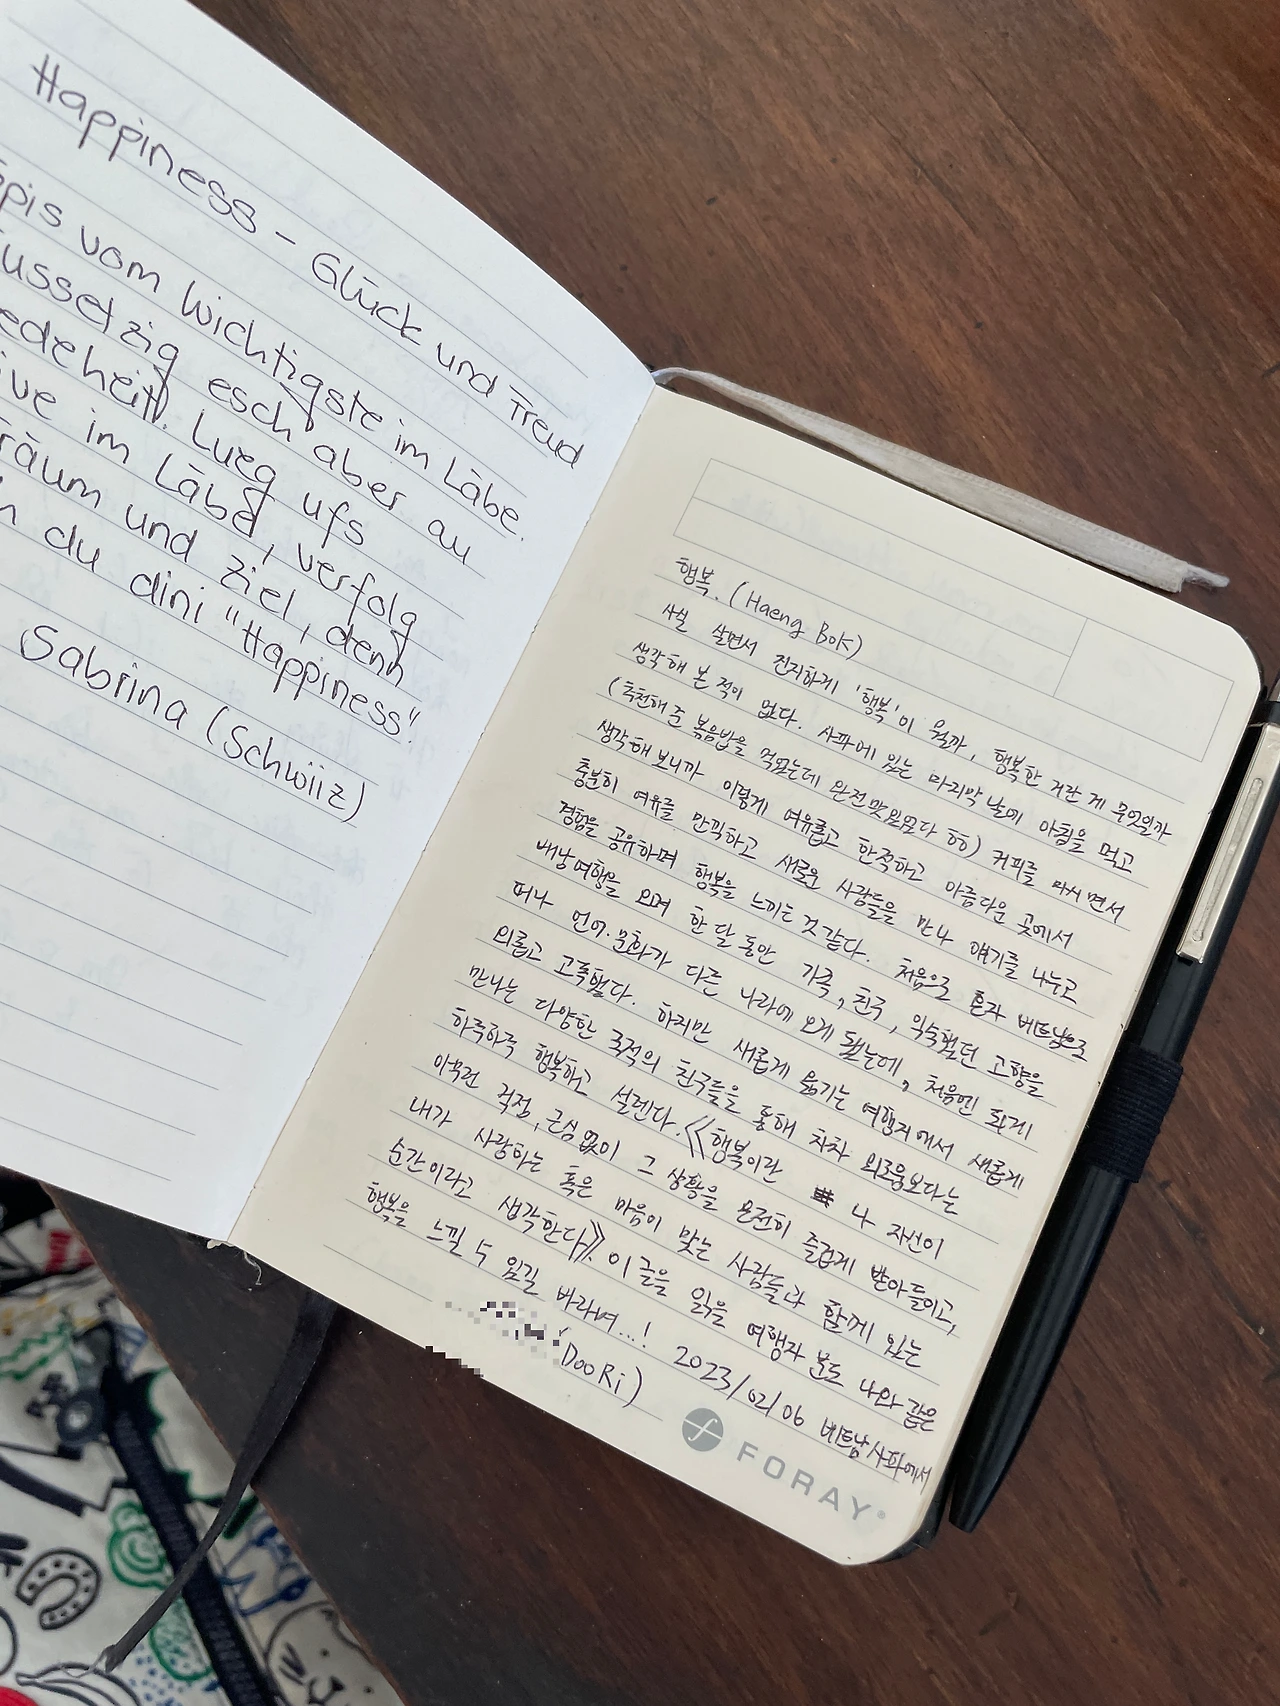 Happiness - Glück und Freud
vom Wichtigste im Läbe.
esch aber au
Lueg ufs
im Läbe, verfolg
und Ziel, denn
du dini "Happiness".
Sabrina (Schwiiz)
행복. (Haeng Bok)
사실 살면서 진지하게 '행복'이 뭘까, 행복한 거란 게 무엇일까
생각해 본 적이 없다. 사파에 있는 마지막 날에 아침을 먹고
(추천해 준 볶음밥을 먹었는데 완전 맛있었다 ㅎㅎ) 커피를 마시면서
생각해보니까 이렇게 여유롭고 한적하고 아름다운 곳에서
충분히 여유를 만끽하고 새로운 사람들을 만나 얘기를 나누고
경험을 공유하며 행복을 느끼는 것 같다. 처음으로 혼자 베트남으로
배낭여행을 오며 한 달 동안 가족, 친구, 익숙했던 고향을
떠나 언어·문화가 다른 나라에 오게 됐는데, 처음엔 되게
외롭고 고독했다. 하지만 새롭게 옮기는 여행지에서 새롭게
만나는 다양한 국적의 친구들을 통해 차차 외로움보다는
하루하루 행복하고 설렌다. 《행복이란 나 자신이
아무런 걱정, 근심 없이 그 상황을 온전히 즐겁게 받아들이고,
내가 사랑하는 혹은 마음이 맞는 사람들과 함께 있는
순간이라고 생각한다》. 이 글을 읽을 여행자 분도 나와 같은
행복을 느낄 수 있길 바라며...! 2023/02/06 베트남 사파에서
DooRi)
FORAY